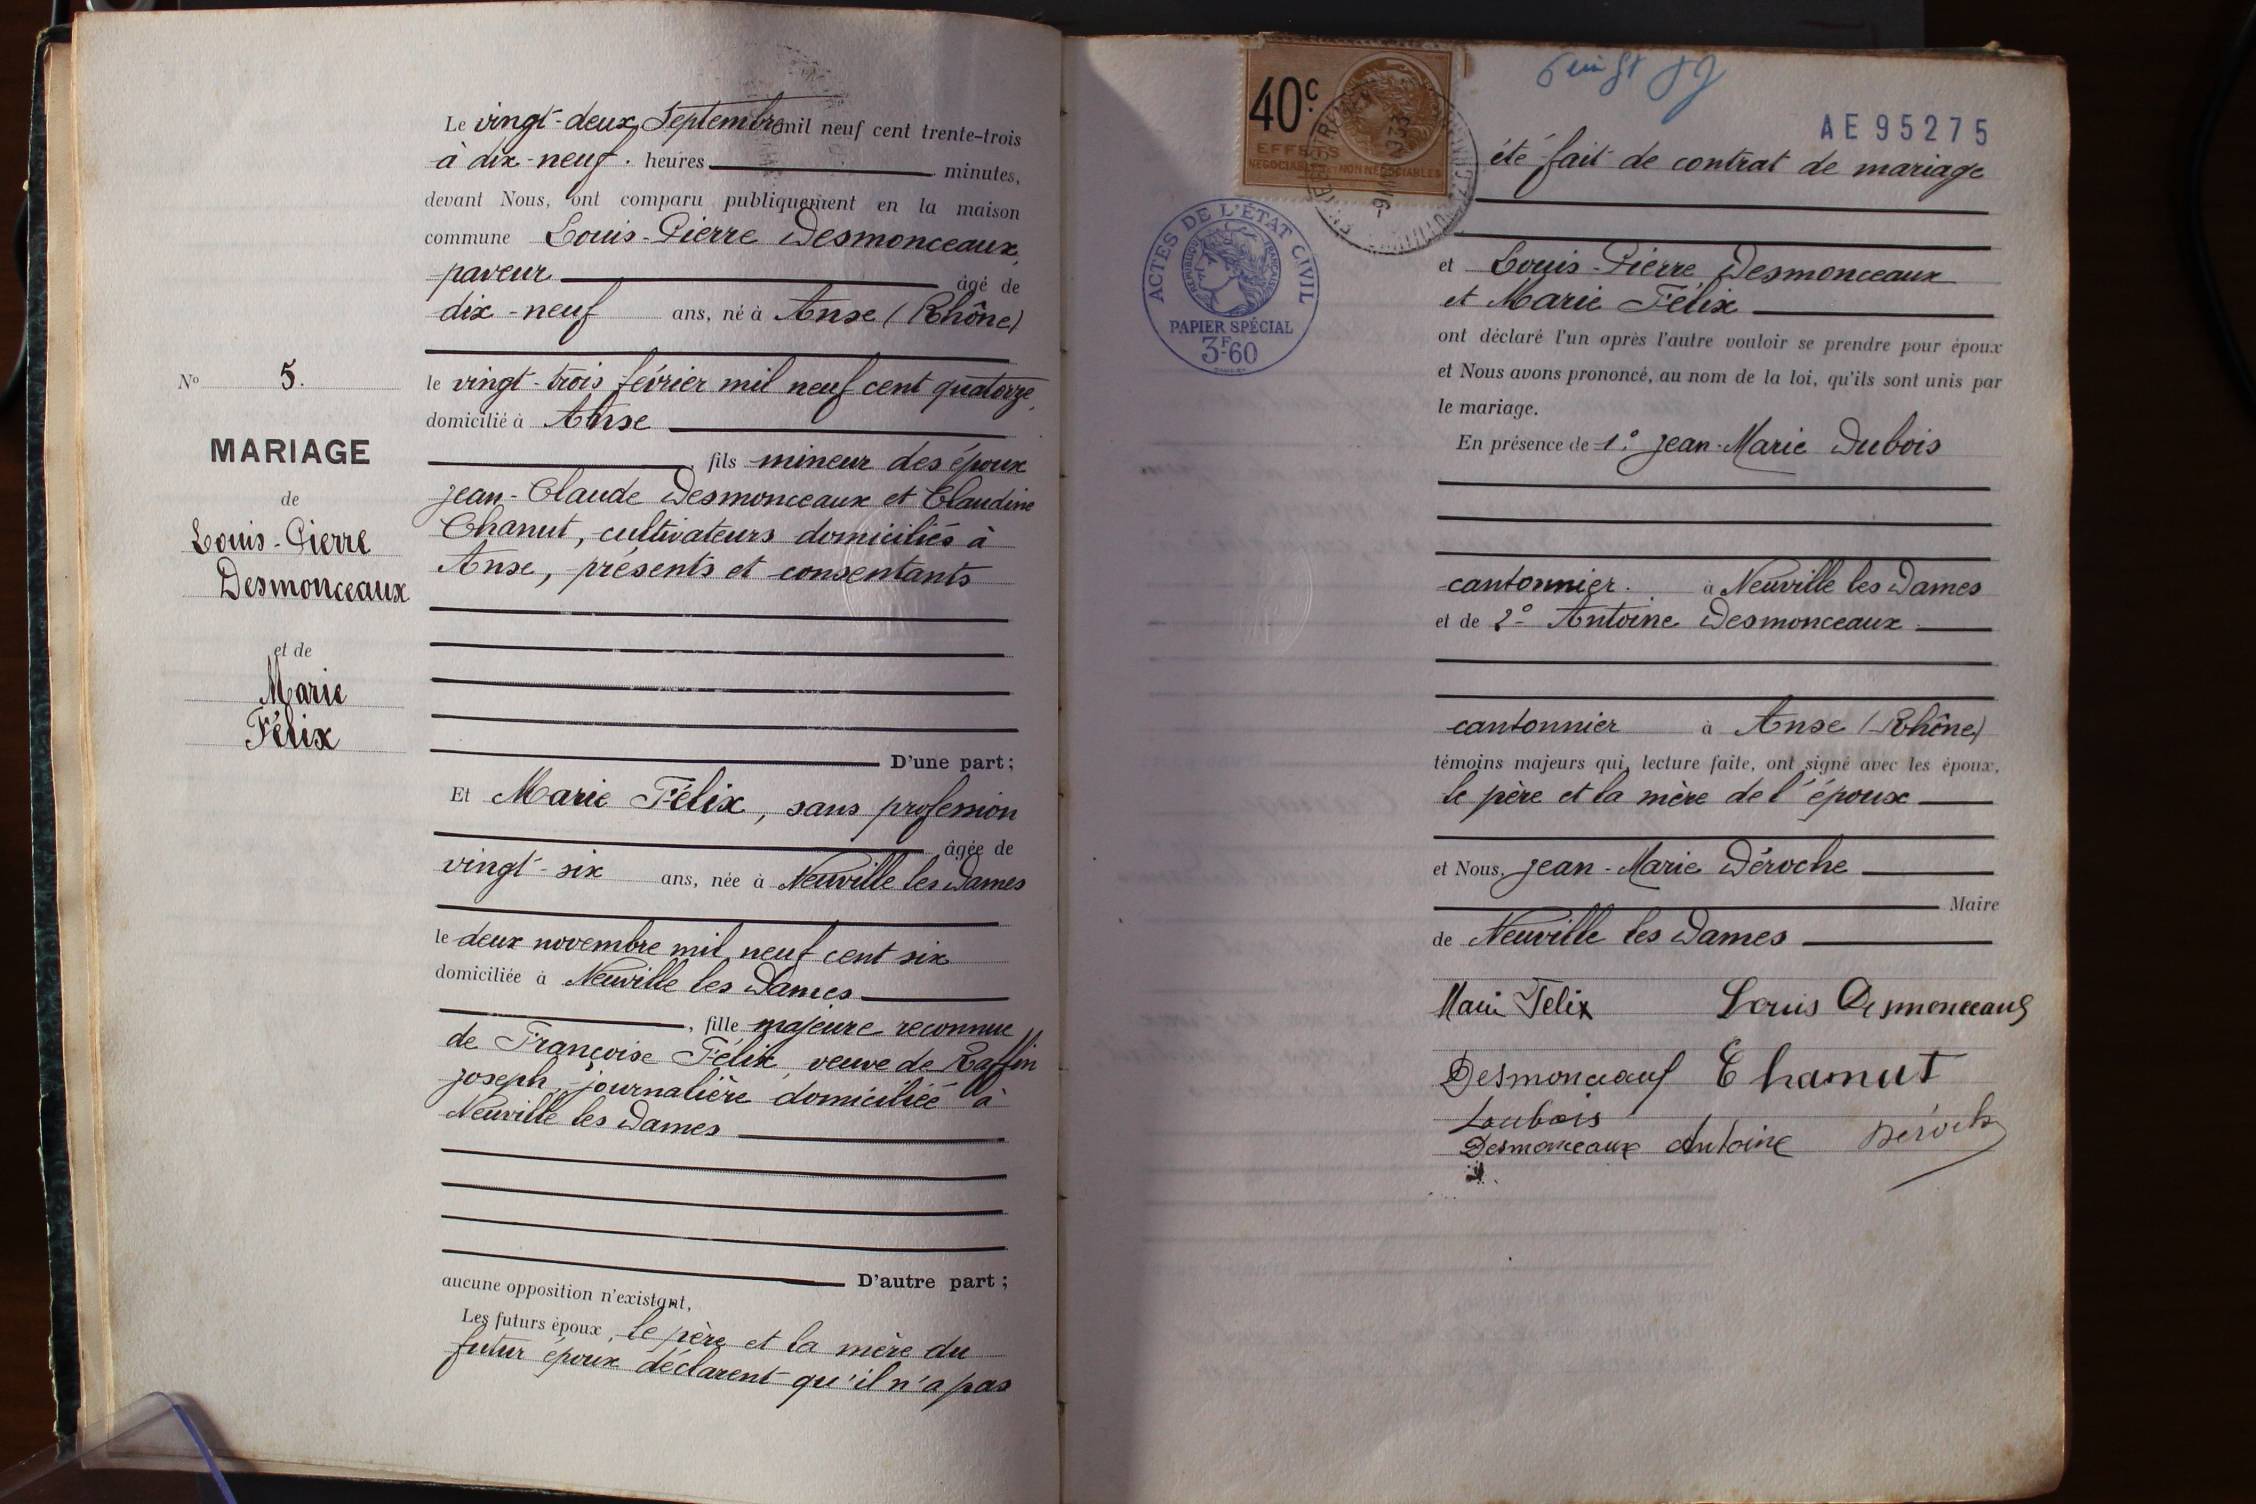 Le vingt-deux Septembre mil neuf cent trente-trois
à dix-neuf heures minutes,
devant Nous, ont comparu publiquement en la maison
commune Louis-Pierre Desmonceaux,
paveur âgé de
dix-neuf ans, né à Anse (Rhône)
le vingt-trois février mil neuf cent quatorze,
domicilié à Anse
, fils mineur des époux
Jean-Claude Desmonceaux et Claudine
Chanut, cultivateurs domiciliés à
Anse, présents et consentants
D'une part;
Et Marie Félix, sans profession
âgée de
vingt-six ans, née à Neuville les Dames
le deux novembre mil neuf cent six
domiciliée à Neuville les Dames
, fille majeure reconnue
de Françoise Félix, veuve de Raffin
Joseph, journalière domiciliée à
Neuville les Dames
D'autre part;
aucune opposition n'existant,
Les futurs époux, le père et la mère du
futur époux déclarent qu'il n'a pas
No 5.
MARIAGE
de
Louis-Pierre
Desmonceaux
et de
Marie
Félix
40c
EFFETS
NÉGOCIABLES ET NON NÉGOCIABLES
ACTES DE L'ÉTAT CIVIL
RÉPUBLIQUE FRANÇAISE
PAPIER SPÉCIAL
3F60
AE95275
été fait de contrat de mariage
et Louis-Pierre Desmonceaux
et Marie Félix
ont déclaré l'un après l'autre vouloir se prendre pour époux
et Nous avons prononcé, au nom de la loi, qu'ils sont unis par
le mariage.
En présence de 1° Jean-Marie Dubois
cantonnier à Neuville les Dames
et de 2° Antoine Desmonceaux
cantonnier à Anse (Rhône)
témoins majeurs qui, lecture faite, ont signé avec les époux,
le père et la mère de l'époux
et Nous, Jean-Marie Déroche
Maire
de Neuville les Dames
Marie Felix Louis Desmonceaux
Desmonceaux C Chanut
Desmonceaux Antoine Déroche